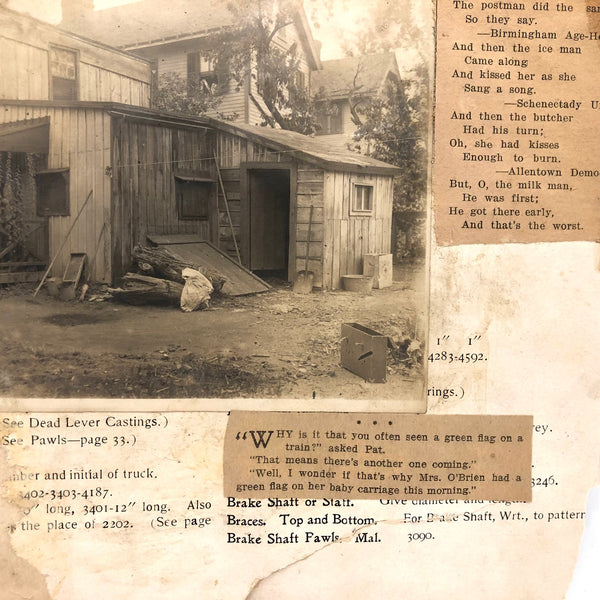 The postman did the
So they say.
—Birmingham Age-He
And then the ice man
Came along
And kissed her as she
Sang a song.
—Schenectady U
And then the butcher
Had his turn;
Oh, she had kisses
Enough to burn.
—Allentown Demo
But, O, the milk man,
He was first;
He got there early,
And that's the worst.
1″ 1″
4283-4592.
rings.)
See Dead Lever Castings.)
See Pawls—page 33.)
"WHY is it that you often seen a green flag on a
train?" asked Pat.
"That means there's another one coming."
"Well, I wonder if that's why Mrs. O'Brien had a
green flag on her baby carriage this morning."
rey.
mber and initial of truck.
3402-3403-4187.
3246.
0″ long, 3401-12″ long. Also
s the place of 2202. (See page
Brake Shaft or Staff. Give diameter and length
Braces. Top and Bottom. For Brake Shaft, Wrt., to pattern
Brake Shaft Pawls, Mal. 3090.